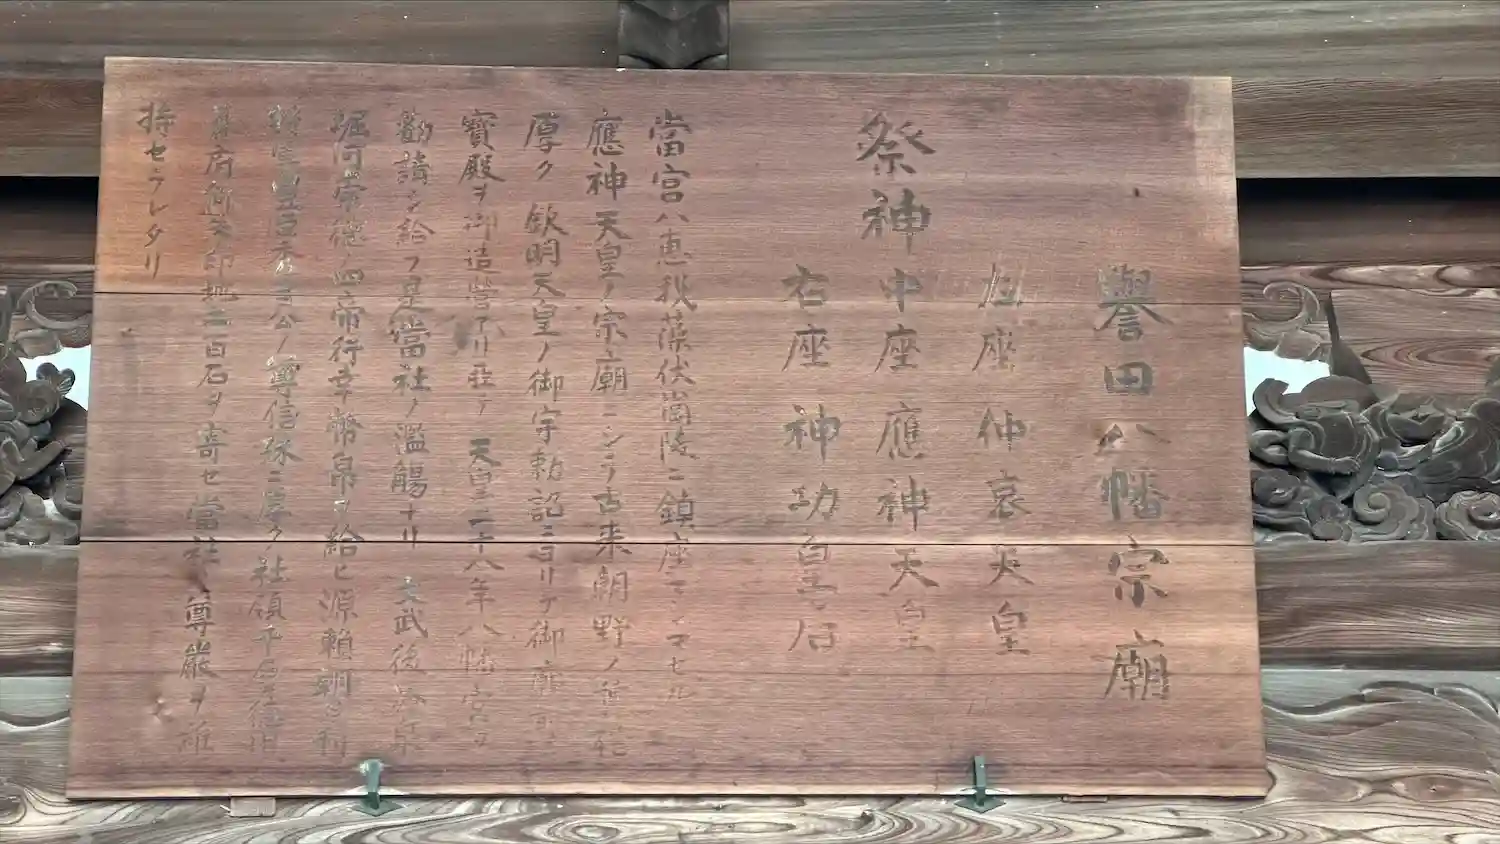 譽田八幡宗廟
左座 仲哀天皇
祭神 中座 應神天皇
右座 神功皇后
當宮ハ恵我藻伏崗陵ニ鎮座マシマセル
應神天皇ノ宗廟ニシテ古来朝野ノ
厚ク 欽明天皇ノ御宇勅詔ニヨリテ御廟前ニ
寶殿ヲ御造營アリ 天皇二十八年八幡宮ヲ
勧請シ給フ是當社ノ濫觴ナリ 天武後冷泉
堀河崇徳ノ四帝行幸幣帛ヲ給ヒ源頼朝
豊臣秀吉公ノ尊信殊ニ厚ク社領
幕府朱印地二百石ヲ寄セ當社ノ尊嚴ヲ維
持セラレタリ